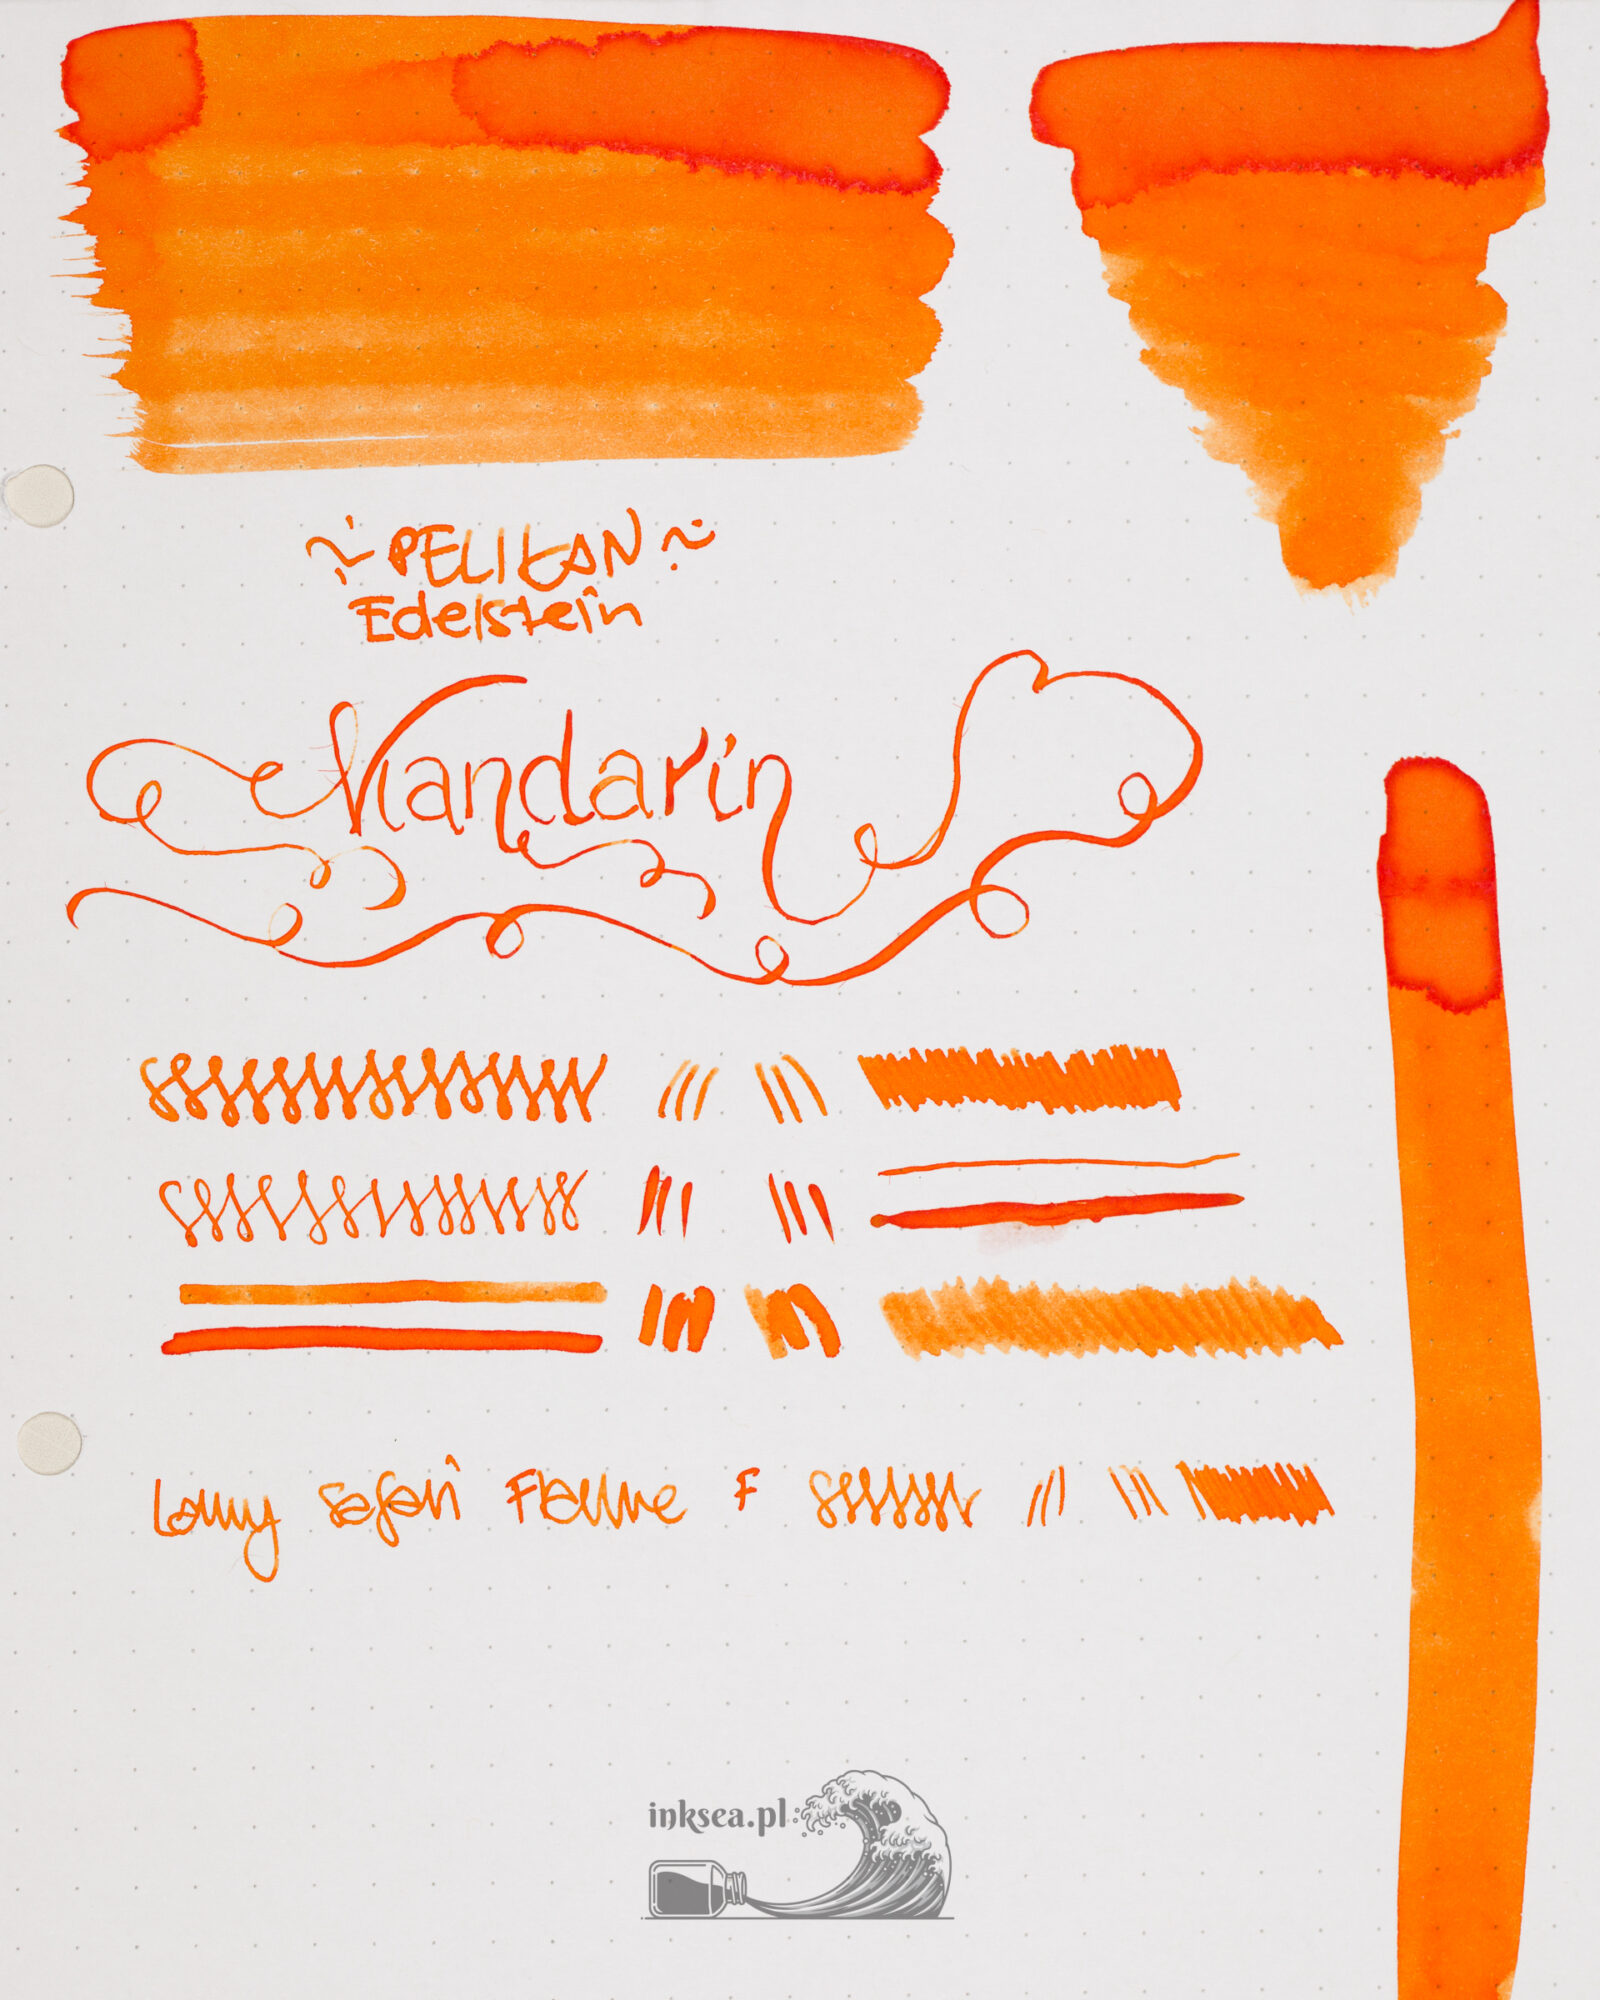 ~ PELIKAN ~
Edelstein
Mandarin
Lamy Safari Flame F
inksea.pl